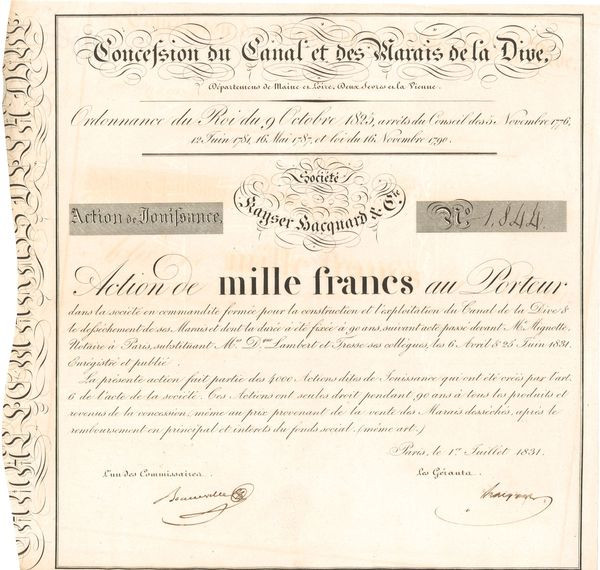 Concession du Canal et des Marais de la Dive,
Départemens de Maine et Loire, Deux Sevres et la Vienne.
Ordonnance du Roi du 9 Octobre 1825, arrêts du Conseil des 5. Novembre 1776,
12 Juin 1781, 16. Mai 1787, et loi du 16. Novembre 1790.
Société
Kayser Hacquard & Cie
Action de Jouissance,
No. 1,844.
Action de mille francs au Porteur
dans la société en commandite formée pour la construction et l'exploitation du Canal de la Dive &
le dessèchement de ses Marais et dont la durée a été fixée à 90 ans, suivant acte passé devant Me Mignotte,
Notaire à Paris, substituant Mes Dan Lambert et Fresse ses collègues, les 6 Avril & 25 Juin 1831.
Enregistré et publié.
La présente action fait partie des 4000 Actions dites de Jouissance qui ont été crées par l'art.
6 de l'acte de la société. Ces Actions ont seules droit pendant 90 ans à tous les produits et
revenus de la concession, même au prix provenant de la vente des Marais dessèchés, après le
remboursement en principal et interets du fonds social. (même art.)
Paris, le 1er Juillet 1831.
L'un des Commissaires.
Les Gérants.